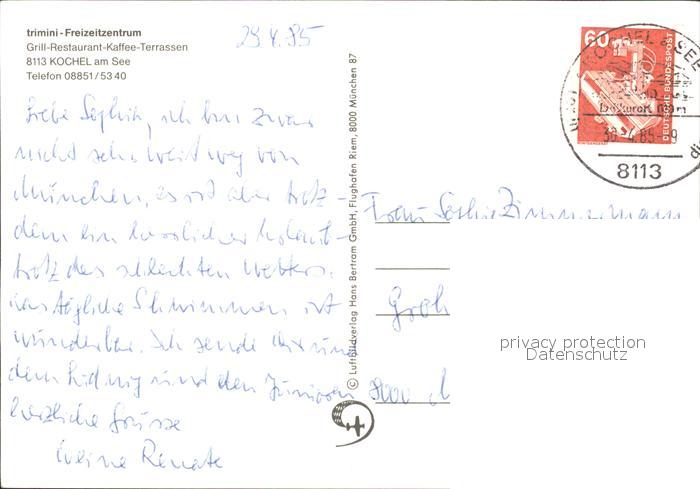 trimini - Freizeitzentrum
Grill-Restaurant-Kaffee-Terrassen
8113 KOCHEL am See
Telefon 08851/53 40
29.4.85
Liebe Sophie, ich bin zwar
nicht sehr weit weg von
München, es ist aber trotz-
dem ein herrlicher
trotz des schlechten Wetters.
Das tägliche Schwimmen ist
wunderbar. Ich sende dir und
dem und den Junioren
herzliche Grüsse
Deine Renate
© Luftbildverlag Hans Bertram GmbH, Flughafen Riem, 8000 München 87
60
DEUTSCHE BUNDESPOST
KOCHEL SEE
30.4.85-9
8113
Frau Sophie Zimmermann
Groh
8000 M
privacy protection
Datenschutz